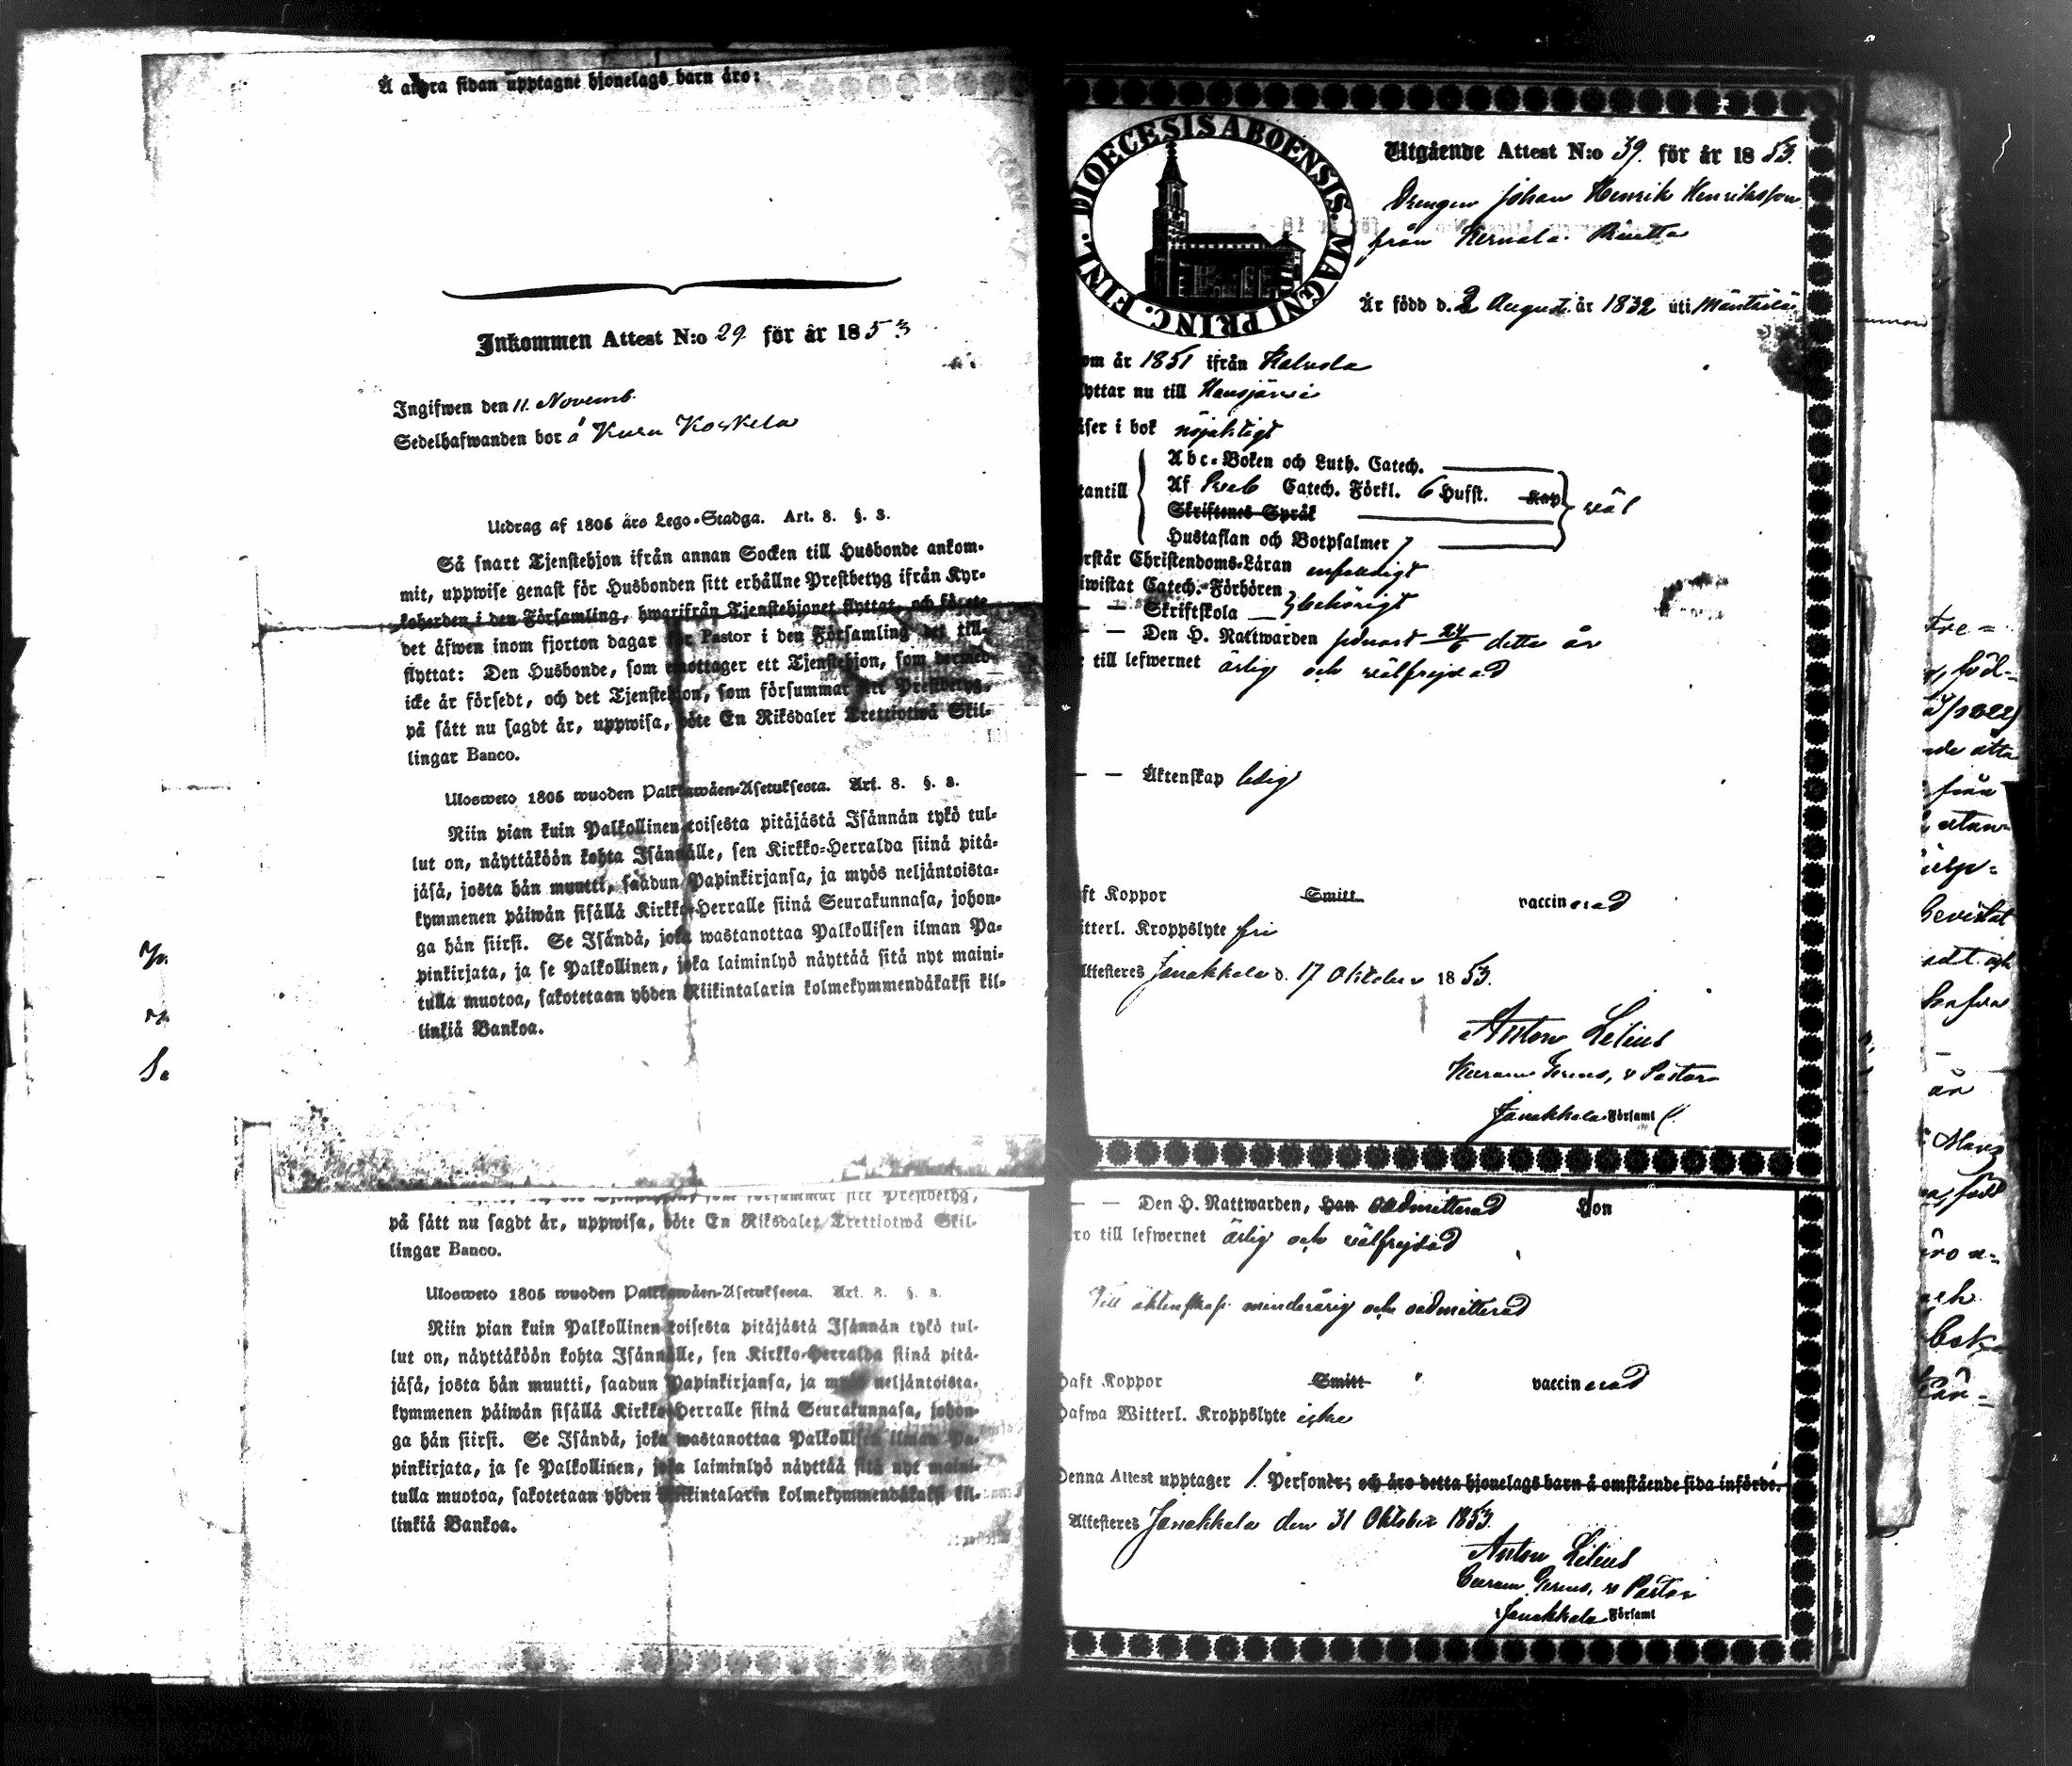 Å andra sidan upptagne hjonelags barn äro:
Inkommen Attest N:o 29 för år 1853
Ingifwen den 11. Novemb.
Sedelhafwanden bor å Kuru Koskela
Utdrag af 1805 års Lego-Stadga. Art. 8. §. 3.
Så snart Tjenstehjon ifrån annan Socken till Husbonde ankom-
mit, uppwise genast för Husbonden sitt erhållne Prestbetyg ifrån Kyr-
koherden i den Församling, hwarifrån Tjenstehjonet flyttat, och förete
det äfwen inom fjorton dagar för Pastor i den Församling det till-
flyttat: Den Husbonde, som emottager ett Tjenstehjon, som dermed
icke är försedt, och det Tjenstehjon, som försummar sitt Prestbetyg,
på sätt nu sagdt är, uppwisa, böte En Riksdaler Trettiotwå Skil-
lingar Banco.
Ulosweto 1805 wuoden Palkkawäen-Asetuksesta. Art. 8. §. 3.
Niin pian kuin Palkollinen toisesta pitäjästä Isännän tykö tul-
lut on, näyttäköön kohta Isännälle, sen Kirkko-Herralda siinä pitä-
jäsä, josta hän muutti, saadun Papinkirjansa, ja myös neljäntoista-
kymmenen päiwän sisällä Kirkko-Herralle siinä Seurakunnasa, johon-
ga hän siirsi. Se Isändä, joka wastanottaa Palkollisen ilman Pa-
pinkirjata, ja se Palkollinen, joka laiminlyö näyttää sitä nyt maini-
tulla muotoa, sakotetaan yhden Riikintalarin kolmekymmendäkaksi kil-
linkiä Bankoa.
som försummar sitt Prestbetyg,
på sätt nu sagdt är, uppwisa, böte En Riksdaler Trettiotwå Skil-
lingar Banco.
Ulosweto 1805 wuoden Palkkawäen-Asetuksesta. Art. 8. §. 3.
Niin pian kuin Palkollinen toisesta pitäjästä Isännän tykö tul-
lut on, näyttäköön kohta Isännälle, sen Kirkko-Herralda siinä pitä-
jäsä, josta hän muutti, saadun Papinkirjansa, ja myös neljäntoista-
kymmenen päiwän sisällä Kirkko-Herralle siinä Seurakunnasa, johon-
ga hän siirsi. Se Isändä, joka wastanottaa Palkollisen ilman Pa-
pinkirjata, ja se Palkollinen, joka laiminlyö näyttää sitä nyt maini-
tulla muotoa, sakotetaan yhden Riikintalarin kolmekymmendäkaksi kil-
linkiä Bankoa.
FINL. DIOECESIS ABOENSIS. MAGNI PRINC.
Utgående Attest N:o 39. för år 1853.
Drengen Johan Henrik Henriksson
från Kernala
Är född d. 2 August. år 1832 uti Mäntsälä
om år 1851 ifrån
yttar nu till Hausjärvi
äser i bok nöjaktigt
Abc-Boken och Luth. Catech.
tantill Af Sveb Catech. Förkl. 6 Hufst. Kap väl
Skriftenes Språk
Hustaflan och Botpsalmer 7
rstår Christendoms-Läran enfaldigt
iwistat Catech.-Förhören
— — Skriftskola behörigt
— Den H. Nattwarden sednast 24/6 detta år
till lefwernet ärlig och välfrejdad
— — Äktenskap ledig
aft Koppor Smitt vaccinerad
itterl. Kroppslyte fri
Attesteres Janakkala d. 17 Oktober 1853.
Anton Lilius
v Pastor
Janakkala Församl
— — Den H. Nattwarden, han admitterad Hon
ro till lefwernet ärlig och välfrejdad
Till äktenskap minderårig och oadmitterad
haft Koppor Smitt vaccinerad
hafwa Witterl. Kroppslyte icke
Denna Attest upptager 1. Personer; och äro detta hjonelags barn å omstående sida införde.
Attesteres Janakkala den 31 Oktober 1853.
Anton Lilius
v Pastor
Janakkala Församl